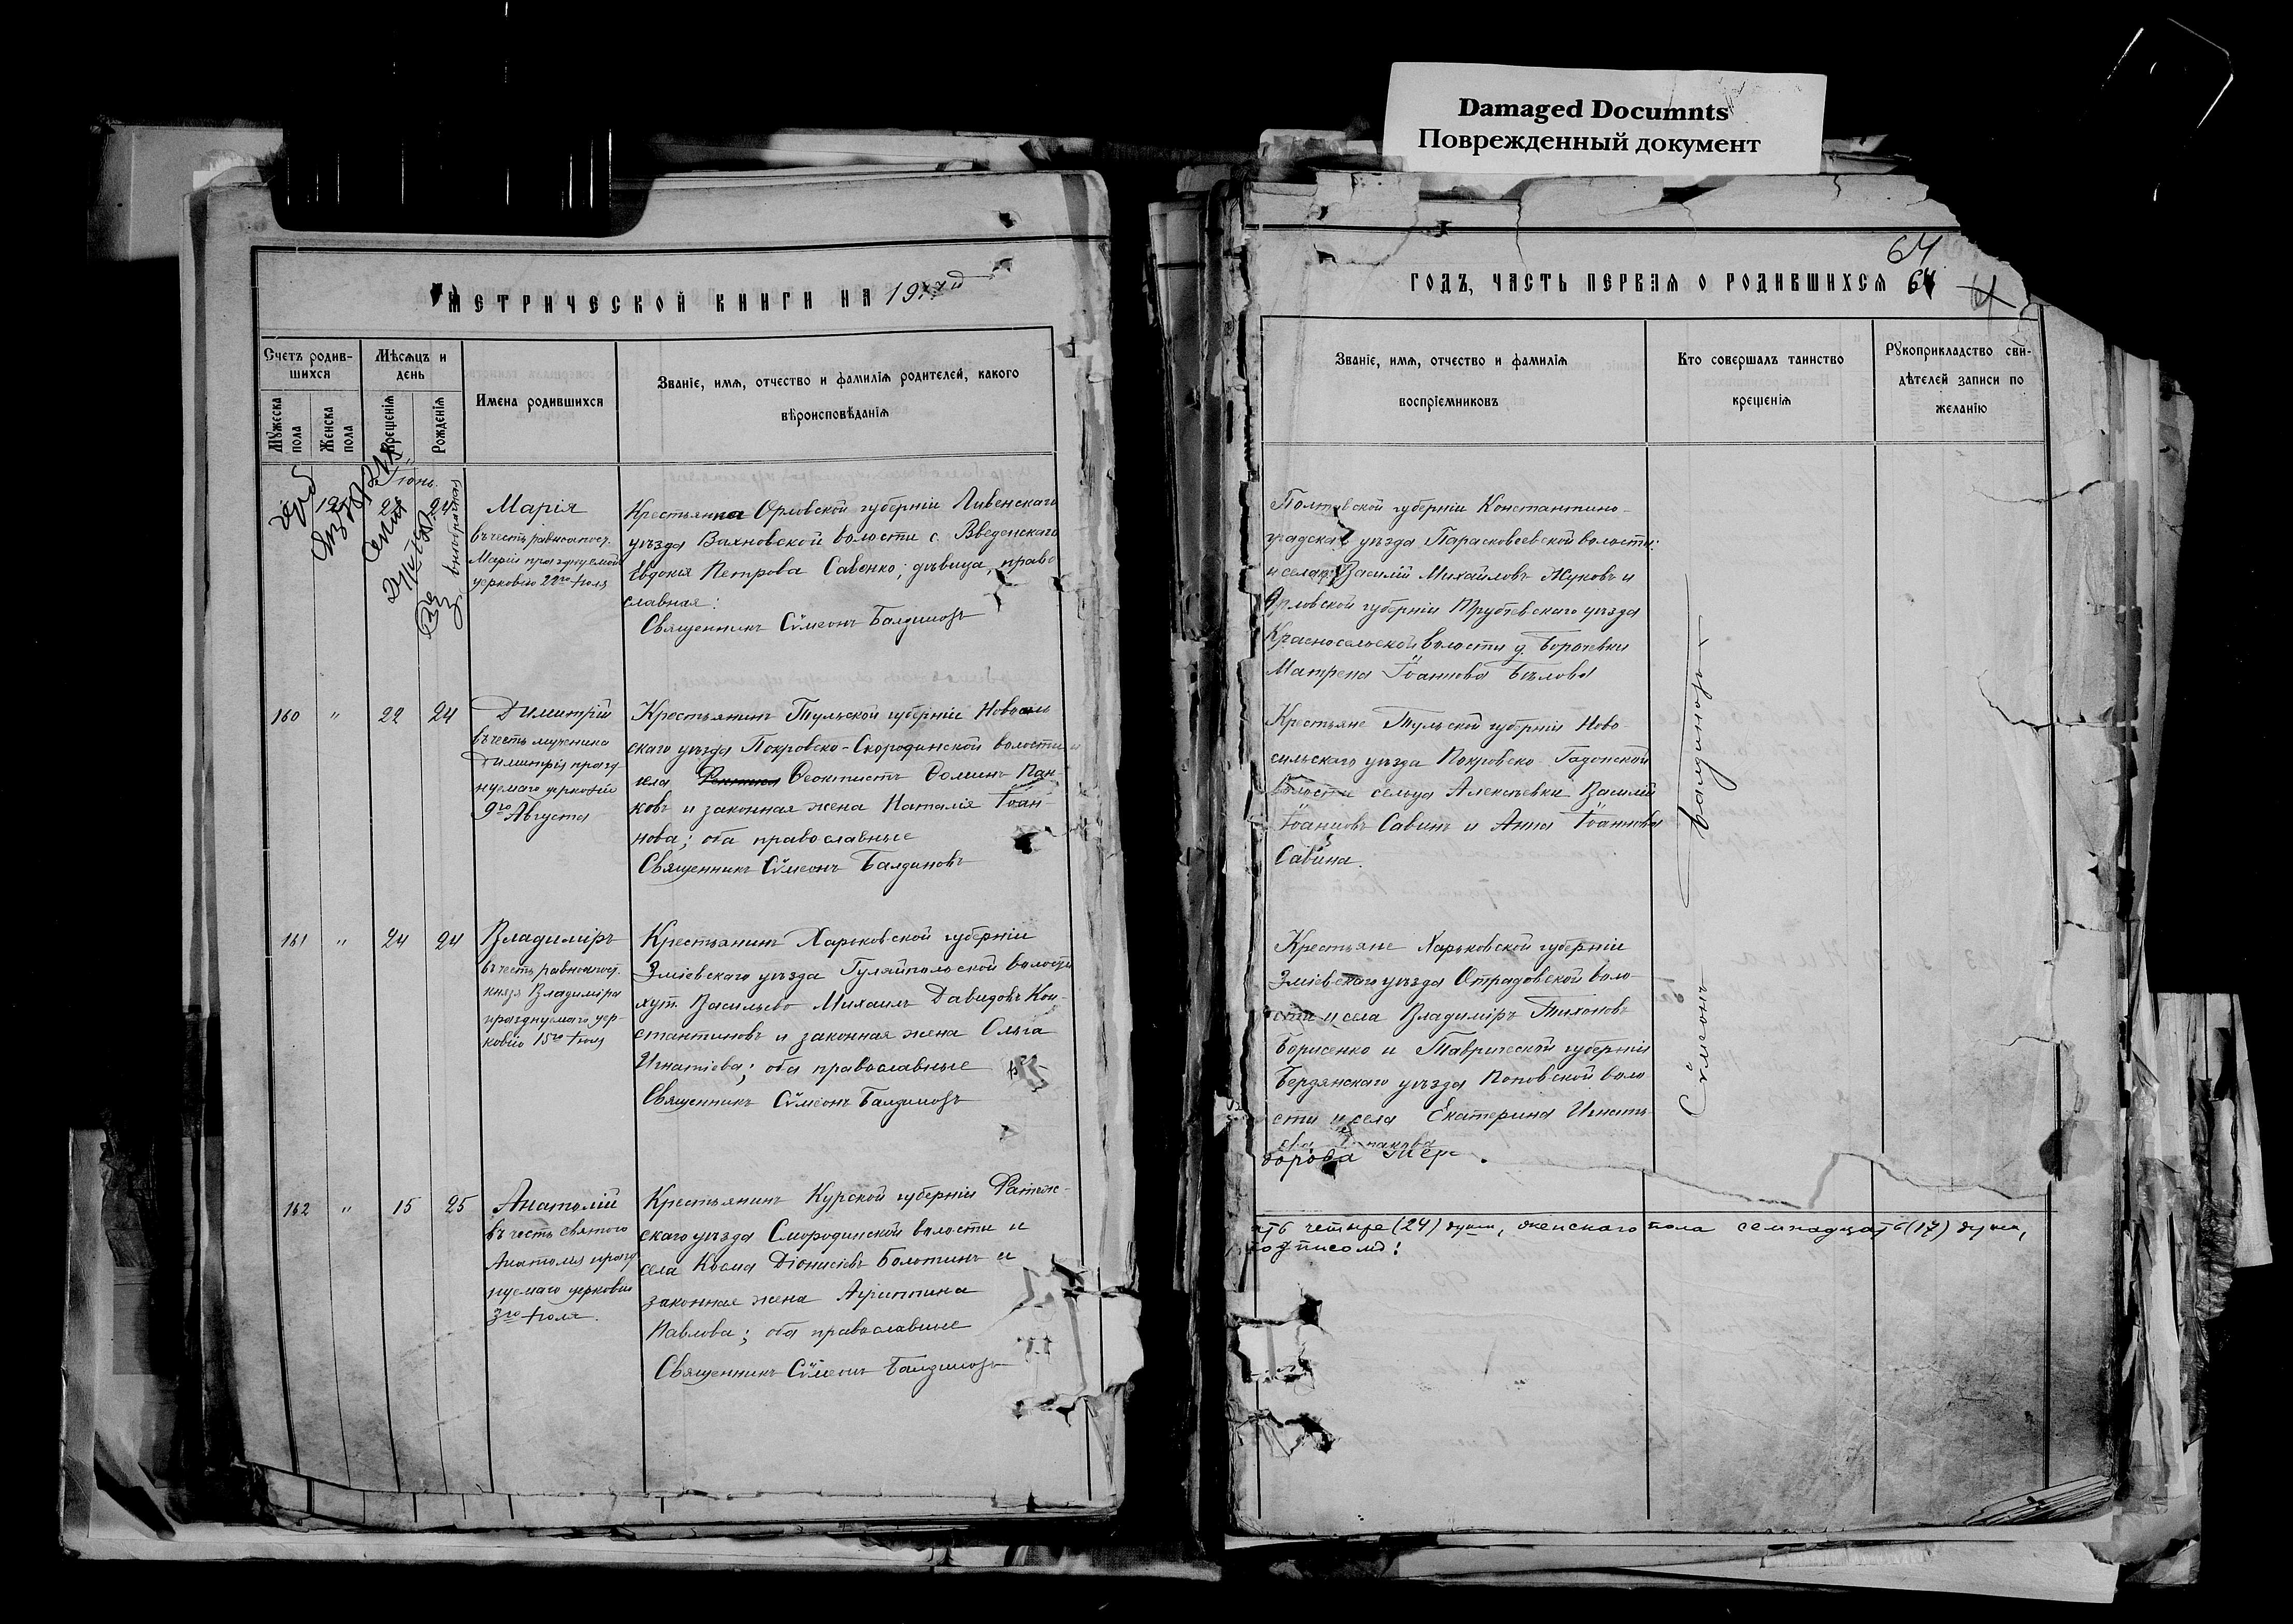 Damaged Documnts
Поврежденный документ
МЕТРИЧЕСКОЙ КНИГИ НА
Счетъ родив-
шихся
Мѣсяцъ и
день
Мужеска
пола
Женска
пола
Крещенія
Рожденія
Имена родившихся
Званіе, имя, отчество и фамилія родителей, какого
вѣроисповѣданія
Марія
въ честь равноапост.
Маріи празднуемой
церковію 22го Іюля
Крестьянка Орловской губерніи Ливенскаго
уѣзда Вахновской волости с. Введенскаго
Евдокія Петрова Савенко; дѣвица, право
славная:
Священникъ Сѵмеонъ Балдиновъ
160 " 22 24
Димитрій
въ честь мученика
Димитрія празд-
нуемаго церковію
9го Августа
Крестьянинъ Тульской губерніи Новосиль
скаго уѣзда Покровско-Скородинской волости и
села Ѳеоктистъ Ѳоминъ Пан-
ковъ и законная жена Наталія Іоан-
нова; оба православные
Священникъ Сѵмеонъ Балдиновъ
161 " 24 24
Владиміръ
въ честь равноапост.
князя Владиміра
празднуемаго цер-
ковію 15го Іюля
Крестьянинъ Харьковской губерніи
Зміевскаго уѣзда Гуляйпольской волости
хут. Васильево Михаилъ Давидовъ Кон-
стантиновъ и законная жена Ольга
Игнатіева; оба православные
Священникъ Сѵмеонъ Балдиновъ
162 " 15 25
Анатолій
въ честь святого
Анатолія празд
нуемаго церковію
3го Іюля.
Крестьянинъ Курской губерніи
скаго уѣзда Смородинской волости и
села Косма Діонисіевъ Болотинъ и
законная жена Агриппина
Павлова; оба православные
Священникъ Сѵмеонъ Балдиновъ
64
ГОДЪ, ЧАСТЬ ПЕРВАЯ О РОДИВШИХСЯ 64
Званіе, имя, отчество и фамилія
воспріемниковъ
Кто совершалъ таинство
крещенія
Рукоприкладство сви-
дѣтелей записи по
желанію
Полтавской губерніи Константино-
градскаг уѣзда Парасковеевской волости:
и села Василій Михайловъ Жуковъ и
Орловской губерніи Трубчевскаго уѣзда
Красносельской волости д.
Матрена Іоаннова Бѣлова
Крестьяне Тульской губерніи Ново-
сильскаго уѣзда Покровско-Гадонской
волости сельца Алексѣевки Василій
Іоанновъ Савинъ и Анна Іоаннова
Савина.
Крестьяне Харьковской губерніи
Зміевскаго уѣзда Отрадовской воло-
сти и села Владиміръ Тихоновъ
Борисенко и Таврической губерніи
Бердянскаго уѣзда Поповской воло-
сти и села Екатерина Игнать-
Сѵмеонъ Балдиновъ
четыре (24) души, женскаго пола семнадцать (17) душъ,
подписомъ: